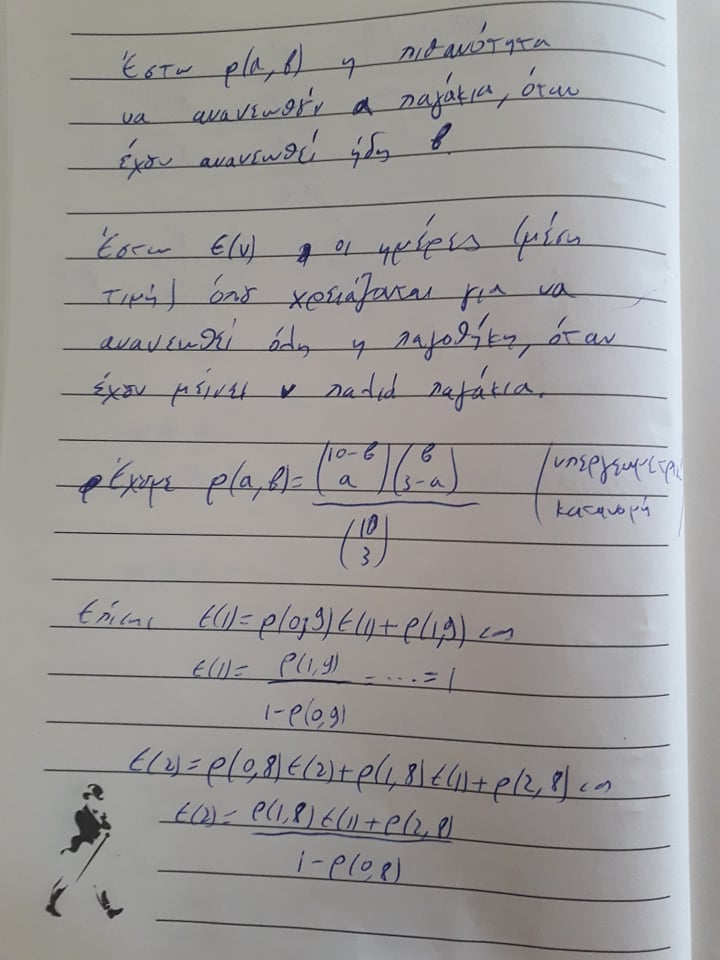 Έστω p(a,b) η πιθανότητα
να ανανεωθούν a παγάκια, όταν
έχουν ανανεωθεί ήδη b.
Έστω t(ν) οι ημέρες (μέση
τιμή) όπου χρειάζονται για να
ανανεωθεί όλη η παγοθήκη, όταν
έχουν μείνει ν παλιά παγάκια.
Έχουμε p(a,b) = \frac{\binom{10-b}{a}\binom{b}{3-a}}{\binom{10}{3}} (υπεργεωμετρική
κατανομή)
Επίσης t(1) = p(0,9) t(1) + p(1,9) <=>
t(1) = \frac{p(1,9)}{1-p(0,9)} = ... = 1
t(2) = p(0,8) t(2) + p(1,8) t(1) + p(2,8) <=>
t(2) = \frac{p(1,8) t(1) + p(2,8)}{1-p(0,8)}